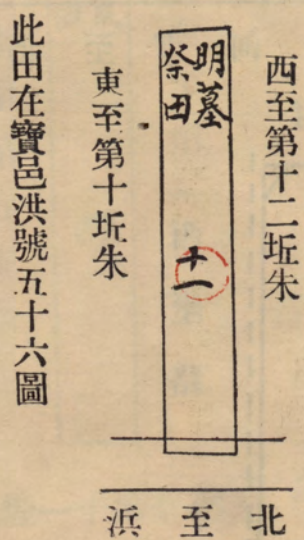 西至第十二坵朱
明墓
祭田
十一
東至第十坵朱
此田在寶邑洪號五十六圖
北至浜